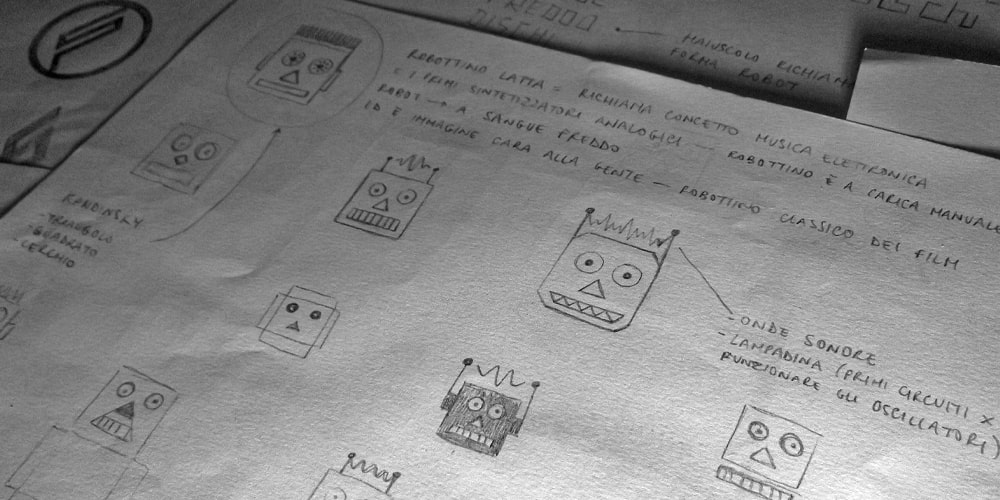 FREDDO
DISCHI
MAIUSCOLO RICHIAMA
FORMA ROBOT
ROBOTTINO LATTA = RICHIAMA CONCETTO MUSICA ELETTRONICA
E I PRIMI SINTETIZZATORI ANALOGICI — ROBOTTINO È A CARICA MANUALE
ROBOT → A SANGUE FREDDO
ED È IMMAGINE CARA ALLA GENTE — ROBOTTINO CLASSICO DEI FILM
KANDINSKY
- TRIANGOLO
- QUADRATO
- CERCHIO
- ONDE SONORE
- LAMPADINA (PRIMI CIRCUITI X
FUNZIONARE GLI OSCILLATORI)